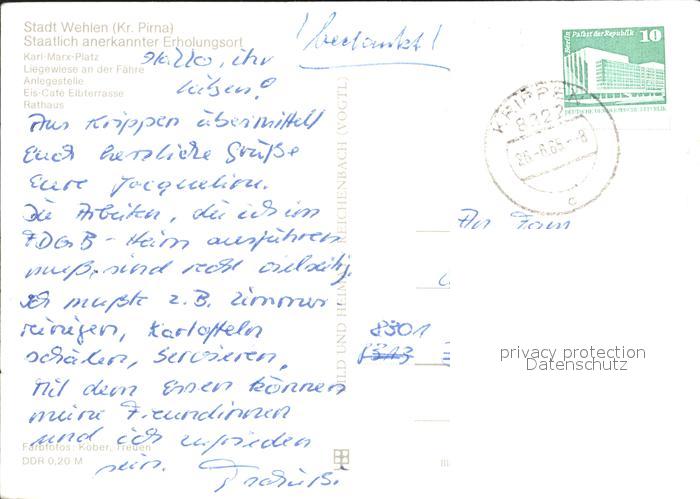 Stadt Wehlen (Kr. Pirna)
Staatlich anerkannter Erholungsort
Karl-Marx-Platz
Liegewiese an der Fähre
Anlegestelle
Eis-Cafe Elbterrasse
Rathaus
! bedankt!
Hallo, ihr
lieben!
Aus Krippen übermittelt
Euch herzliche Grüße
Eure Jacqueline.
Die Arbeiten, die ich im
FDGB-Heim ausführen
muß, sind recht vielseitig.
Ich mußte z.B. Zimmer
reinigen, Kartoffeln
schälen, Servieren,
Mit dem Essen können
meine Freundinnen
und ich zufrieden
sein. Tschüß.
Farbfotos: Köber, Treuen
DDR 0,20 M
BILD UND HEIMAT REICHENBACH (VOGTL)
Berlin Palast der Republik
10
DEUTSCHE DEMOKRATISCHE REPUBLIK
KRIPPEN
8322
c
An Fam
8301
8313
privacy protection
Datenschutz